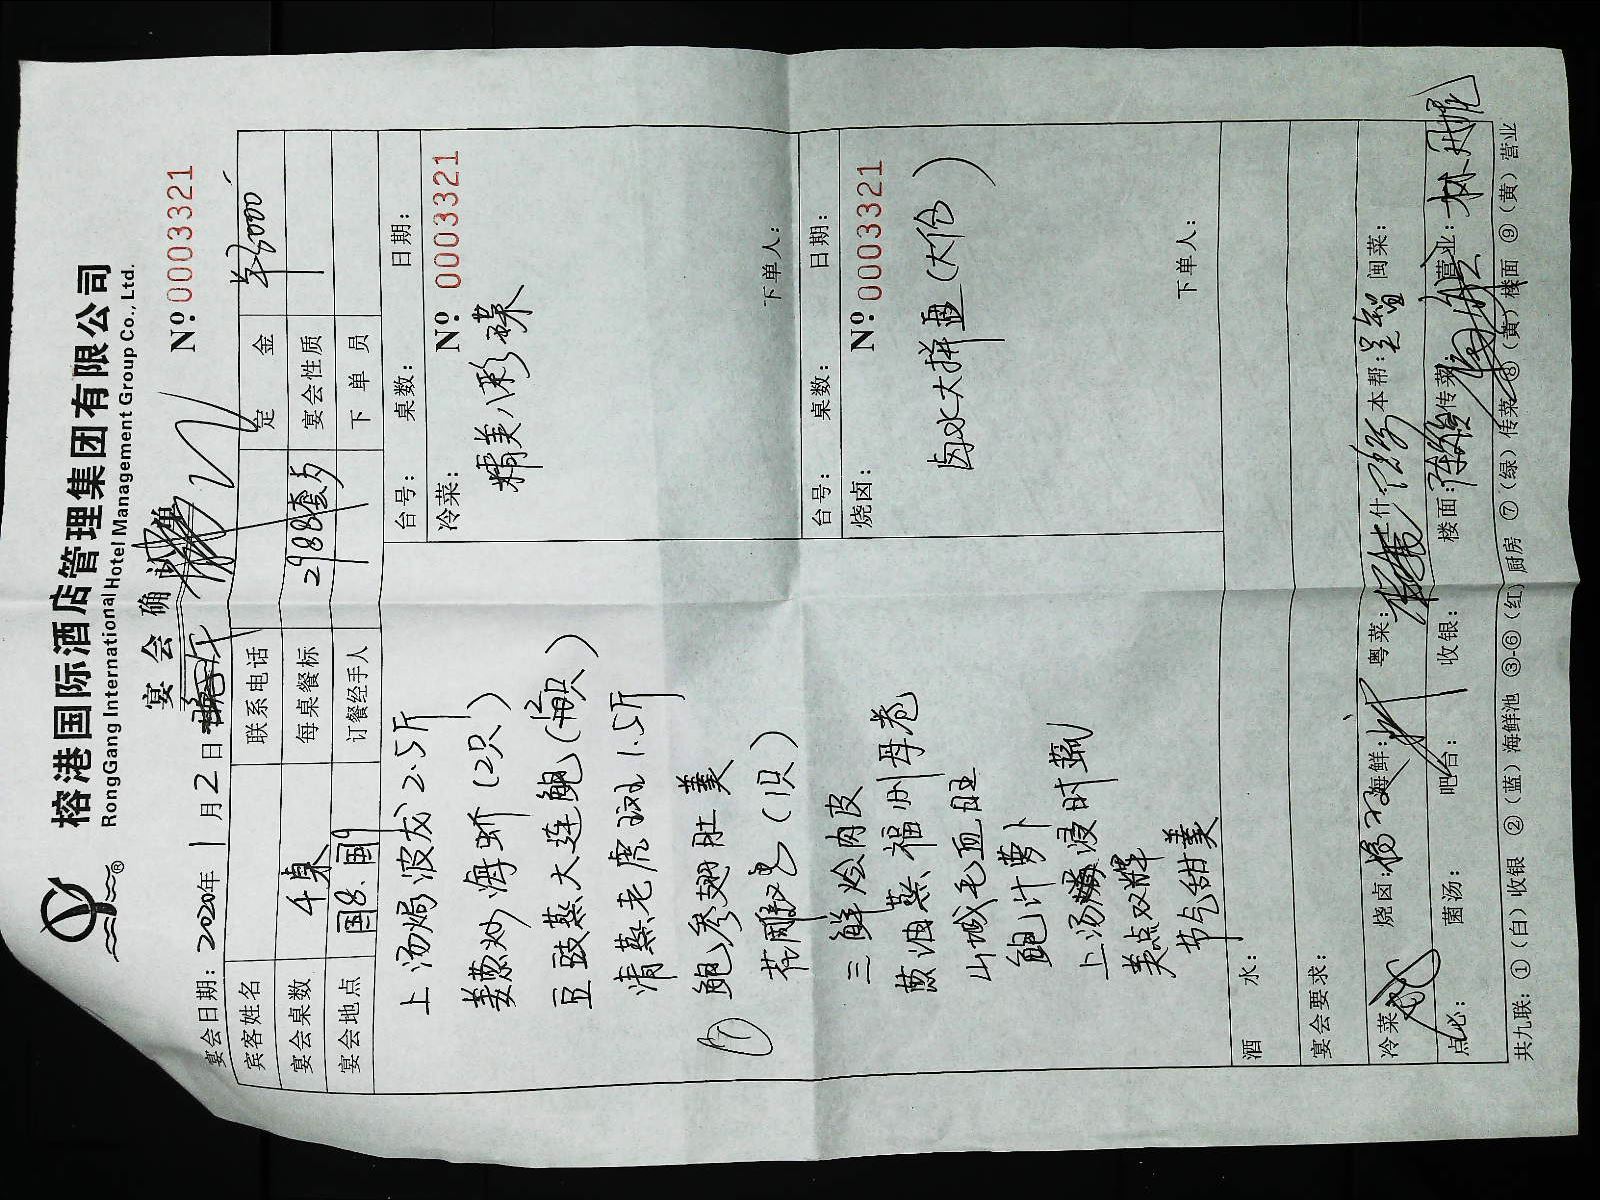 榕港国际酒店管理集团有限公司
RongGang International Hotel Management Group Co., Ltd.
宴会确认单
宴会日期：2020年1月2日 Nº 0003321
宾客姓名 联系电话 定金
宴会桌数 4桌 每桌餐标 2988 宴会性质
宴会地点 国8. 国9 订餐经手人 下单员
上汤焗波龙2.5斤
姜葱炒海蚧（2只）
豆豉蒸大连鲍（12只）
清蒸老虎斑1.5斤
① 鲍参翅肚羹
花雕（1只）
三鲜烩肉皮
葱油蒸福州母卷
山城毛血旺
鲍汁萝卜
上汤浸时蔬
美点双辉
节气甜美
台号： 桌数： 日期：
冷菜： Nº 0003321
精美八彩碟
下单人：
台号： 桌数： 日期：
烧卤： Nº 0003321
卤水大拼盘（大份）
下单人：
酒 水：
宴会要求：
冷菜 烧卤： 海鲜： 粤菜： 什 本帮： 闽菜：
点心： 菌汤： 吧台： 收银： 楼面： 传菜 营业：
共九联：①（白）收银 ②（蓝）海鲜池 ③-⑥（红）厨房 ⑦（绿）传菜 ⑧（黄）楼面 ⑨（黄）营业